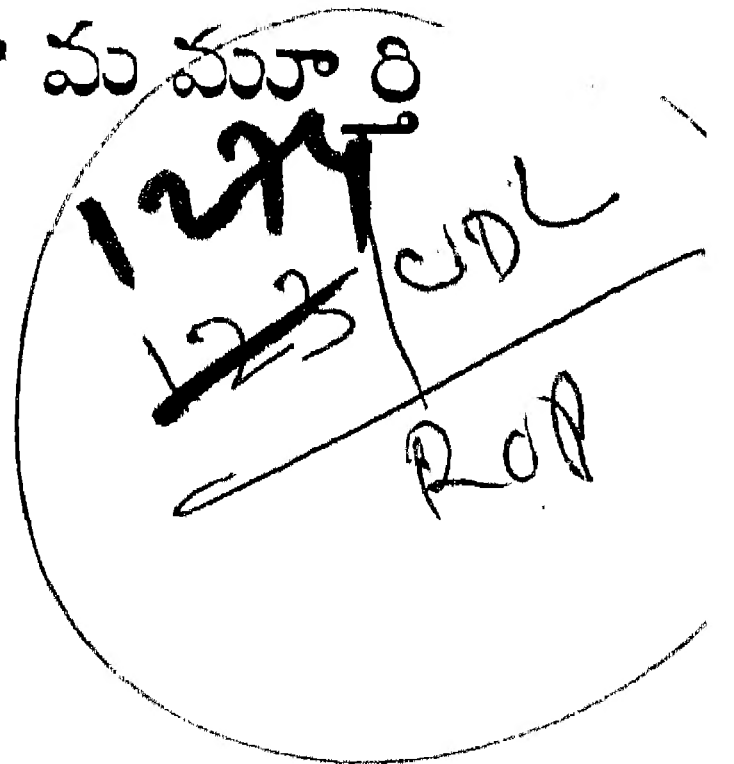 మమూర్తి
1274
123 UDL
ROP